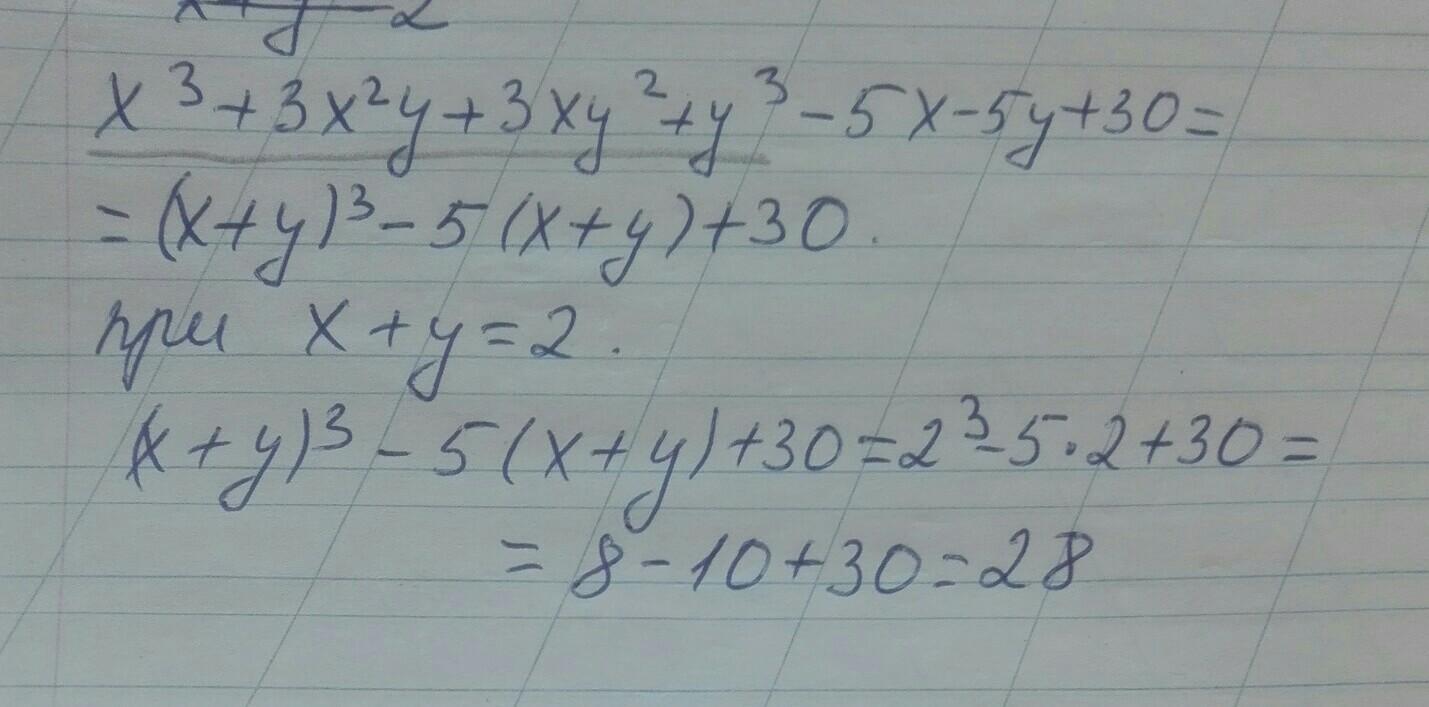 x+y=2
x³+3x²y+3xy²+y³-5x-5y+30=
=(x+y)³-5(x+y)+30.
при x+y=2.
(x+y)³-5(x+y)+30=2³-5·2+30=
=8-10+30=28